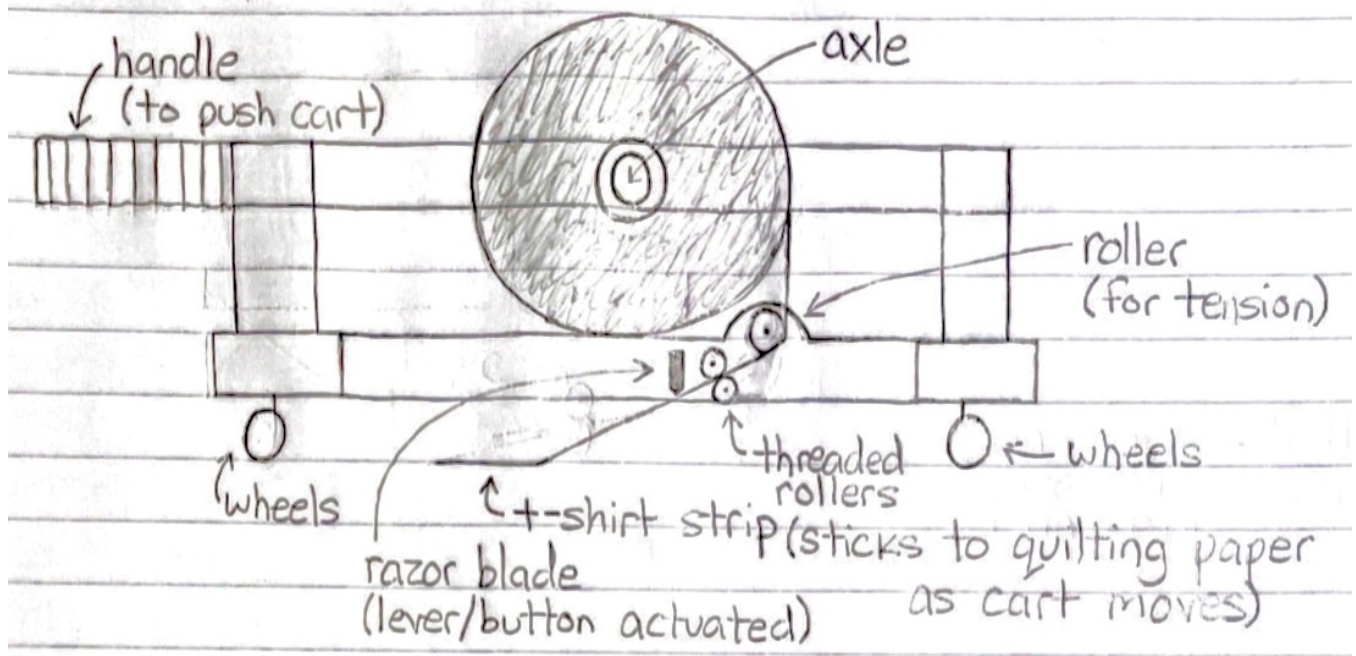 handle
(to push cart)
axle
roller
(for tension)
wheels
threaded
rollers
wheels
t-shirt strip (sticks to quilting paper
as cart moves)
razor blade
(lever/button actuated)